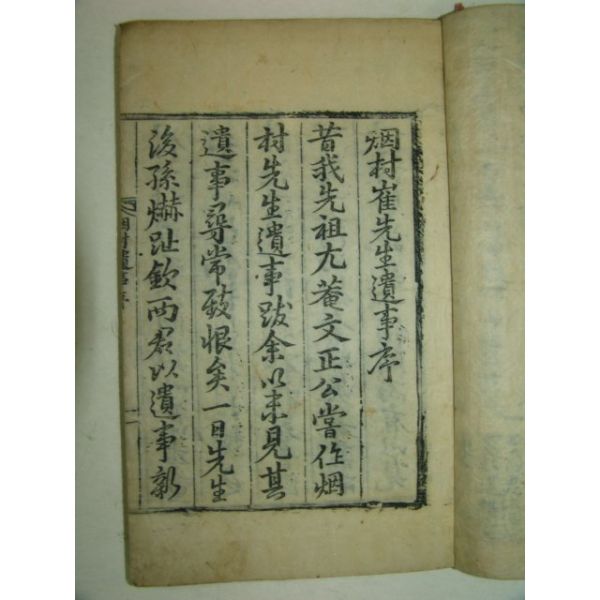 烟村崔先生遺事序
昔我先祖尤菴文正公嘗作烟
村先生遺事跋余以未見其
遺事尋常致恨矣一日先生
後孫爀趾欽两君以遺事新
烟村遺事序
一